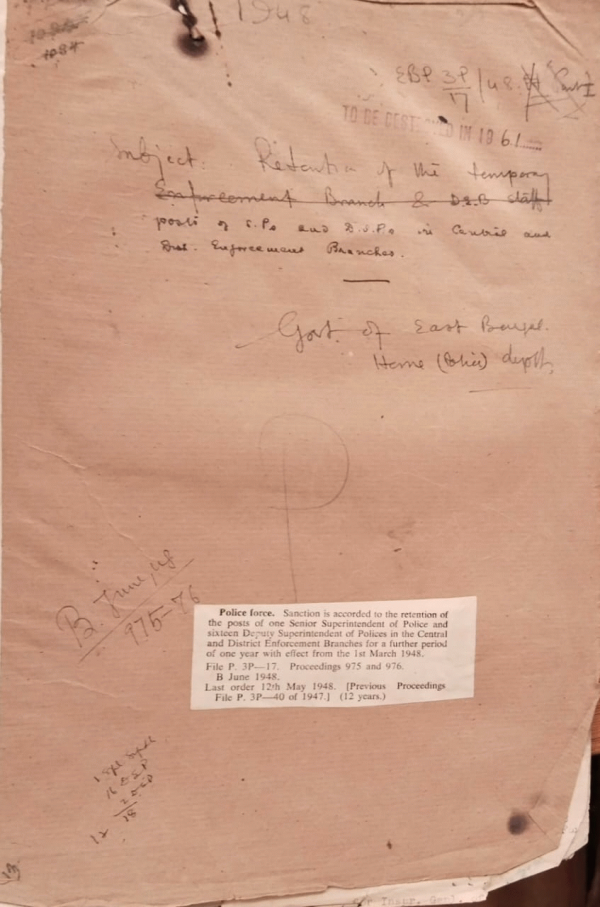 1948
1984
EBP. 3P/17 /48
TO BE DESTROYED IN 1961
Subject. Retention of the temporary
Enforcement Branch & D.E.B staff
posts of S.Ps and D.S.Ps in Central and
Dist. Enforcement Branches.
Govt. of East Bengal.
Home (Police) deptt,
P
B. June, 48
975-76
Police force. Sanction is accorded to the retention of
the posts of one Senior Superintendent of Police and
sixteen Deputy Superintendent of Polices in the Central
and District Enforcement Branches for a further period
of one year with effect from the 1st March 1948.
File P. 3P—17. Proceedings 975 and 976.
B June 1948.
Last order 12th May 1948. [Previous Proceedings
File P. 3P—40 of 1947.] (12 years.)
18
12